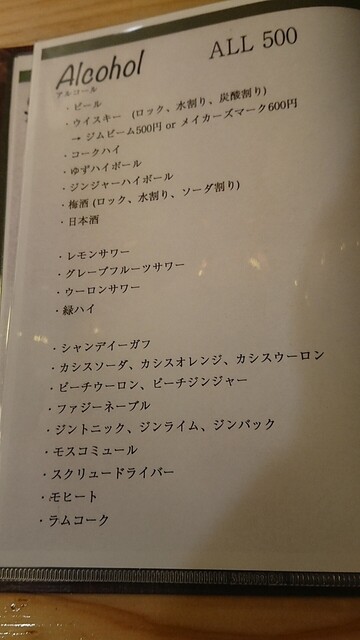 Alcohol ALL 500
アルコール
・ビール
・ウイスキー (ロック、水割り、炭酸割り)
→ ジムビーム500円 or メイカーズマーク600円
・コークハイ
・ゆずハイボール
・ジンジャーハイボール
・梅酒 (ロック、水割り、ソーダ割り)
・日本酒
・レモンサワー
・グレープフルーツサワー
・ウーロンサワー
・緑ハイ
・シャンディーガフ
・カシスソーダ、カシスオレンジ、カシスウーロン
・ピーチウーロン、ピーチジンジャー
・ファジーネーブル
・ジントニック、ジンライム、ジンバック
・モスコミュール
・スクリュードライバー
・モヒート
・ラムコーク